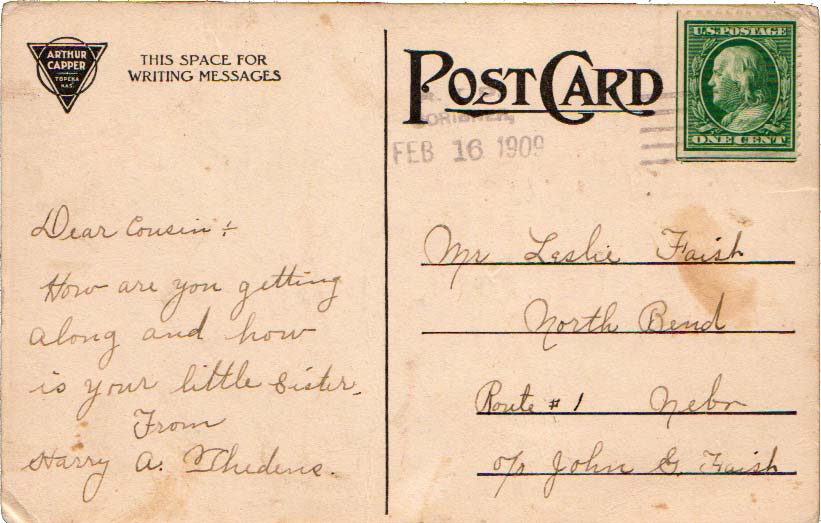 ARTHUR
CAPPER
TOPEKA
KAS.
THIS SPACE FOR
WRITING MESSAGES
Dear Cousin:
How are you getting
along and how
is your little sister.
From
Harry A. Thedens.
POST CARD
SCRIBNER,
FEB 16 1909
U.S. POSTAGE
ONE CENT
Mr Leslie Faish
North Bend
Route #1 Nebr
c/o John G. Faish